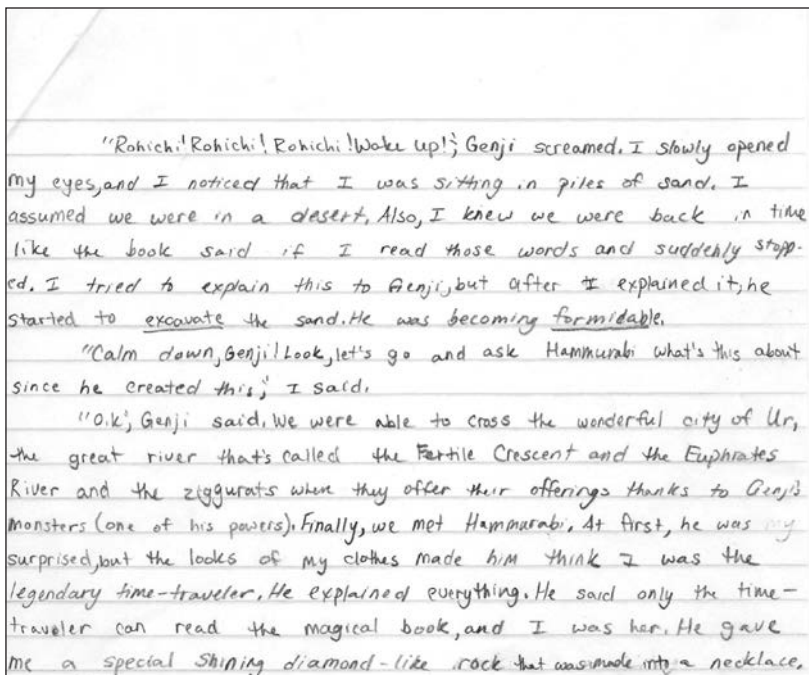 "Rohichi! Rohichi! Rohichi! Wake up!", Genji screamed. I slowly opened
my eyes, and I noticed that I was sitting in piles of sand. I
assumed we were in a desert. Also, I knew we were back in time
like the book said if I read those words and suddenly stopp-
ed. I tried to explain this to Genji, but after I explained it, he
started to excavate the sand. He was becoming formidable.
"Calm down, Genji! Look, let's go and ask Hammurabi what's this about
since he created this," I said.
"O.k", Genji said. We were able to cross the wonderful city of Ur,
the great river that's called the Fertile Crescent and the Euphrates
River and the ziggurats when they offer their offerings thanks to Genji's
monsters (one of his powers). Finally, we met Hammurabi. At first, he was my
surprised, but the looks of my clothes made him think I was the
legendary time-traveler. He explained everything. He said only the time-
traveler can read the magical book, and I was her. He gave
me a special shining diamond-like rock that was made into a necklace.